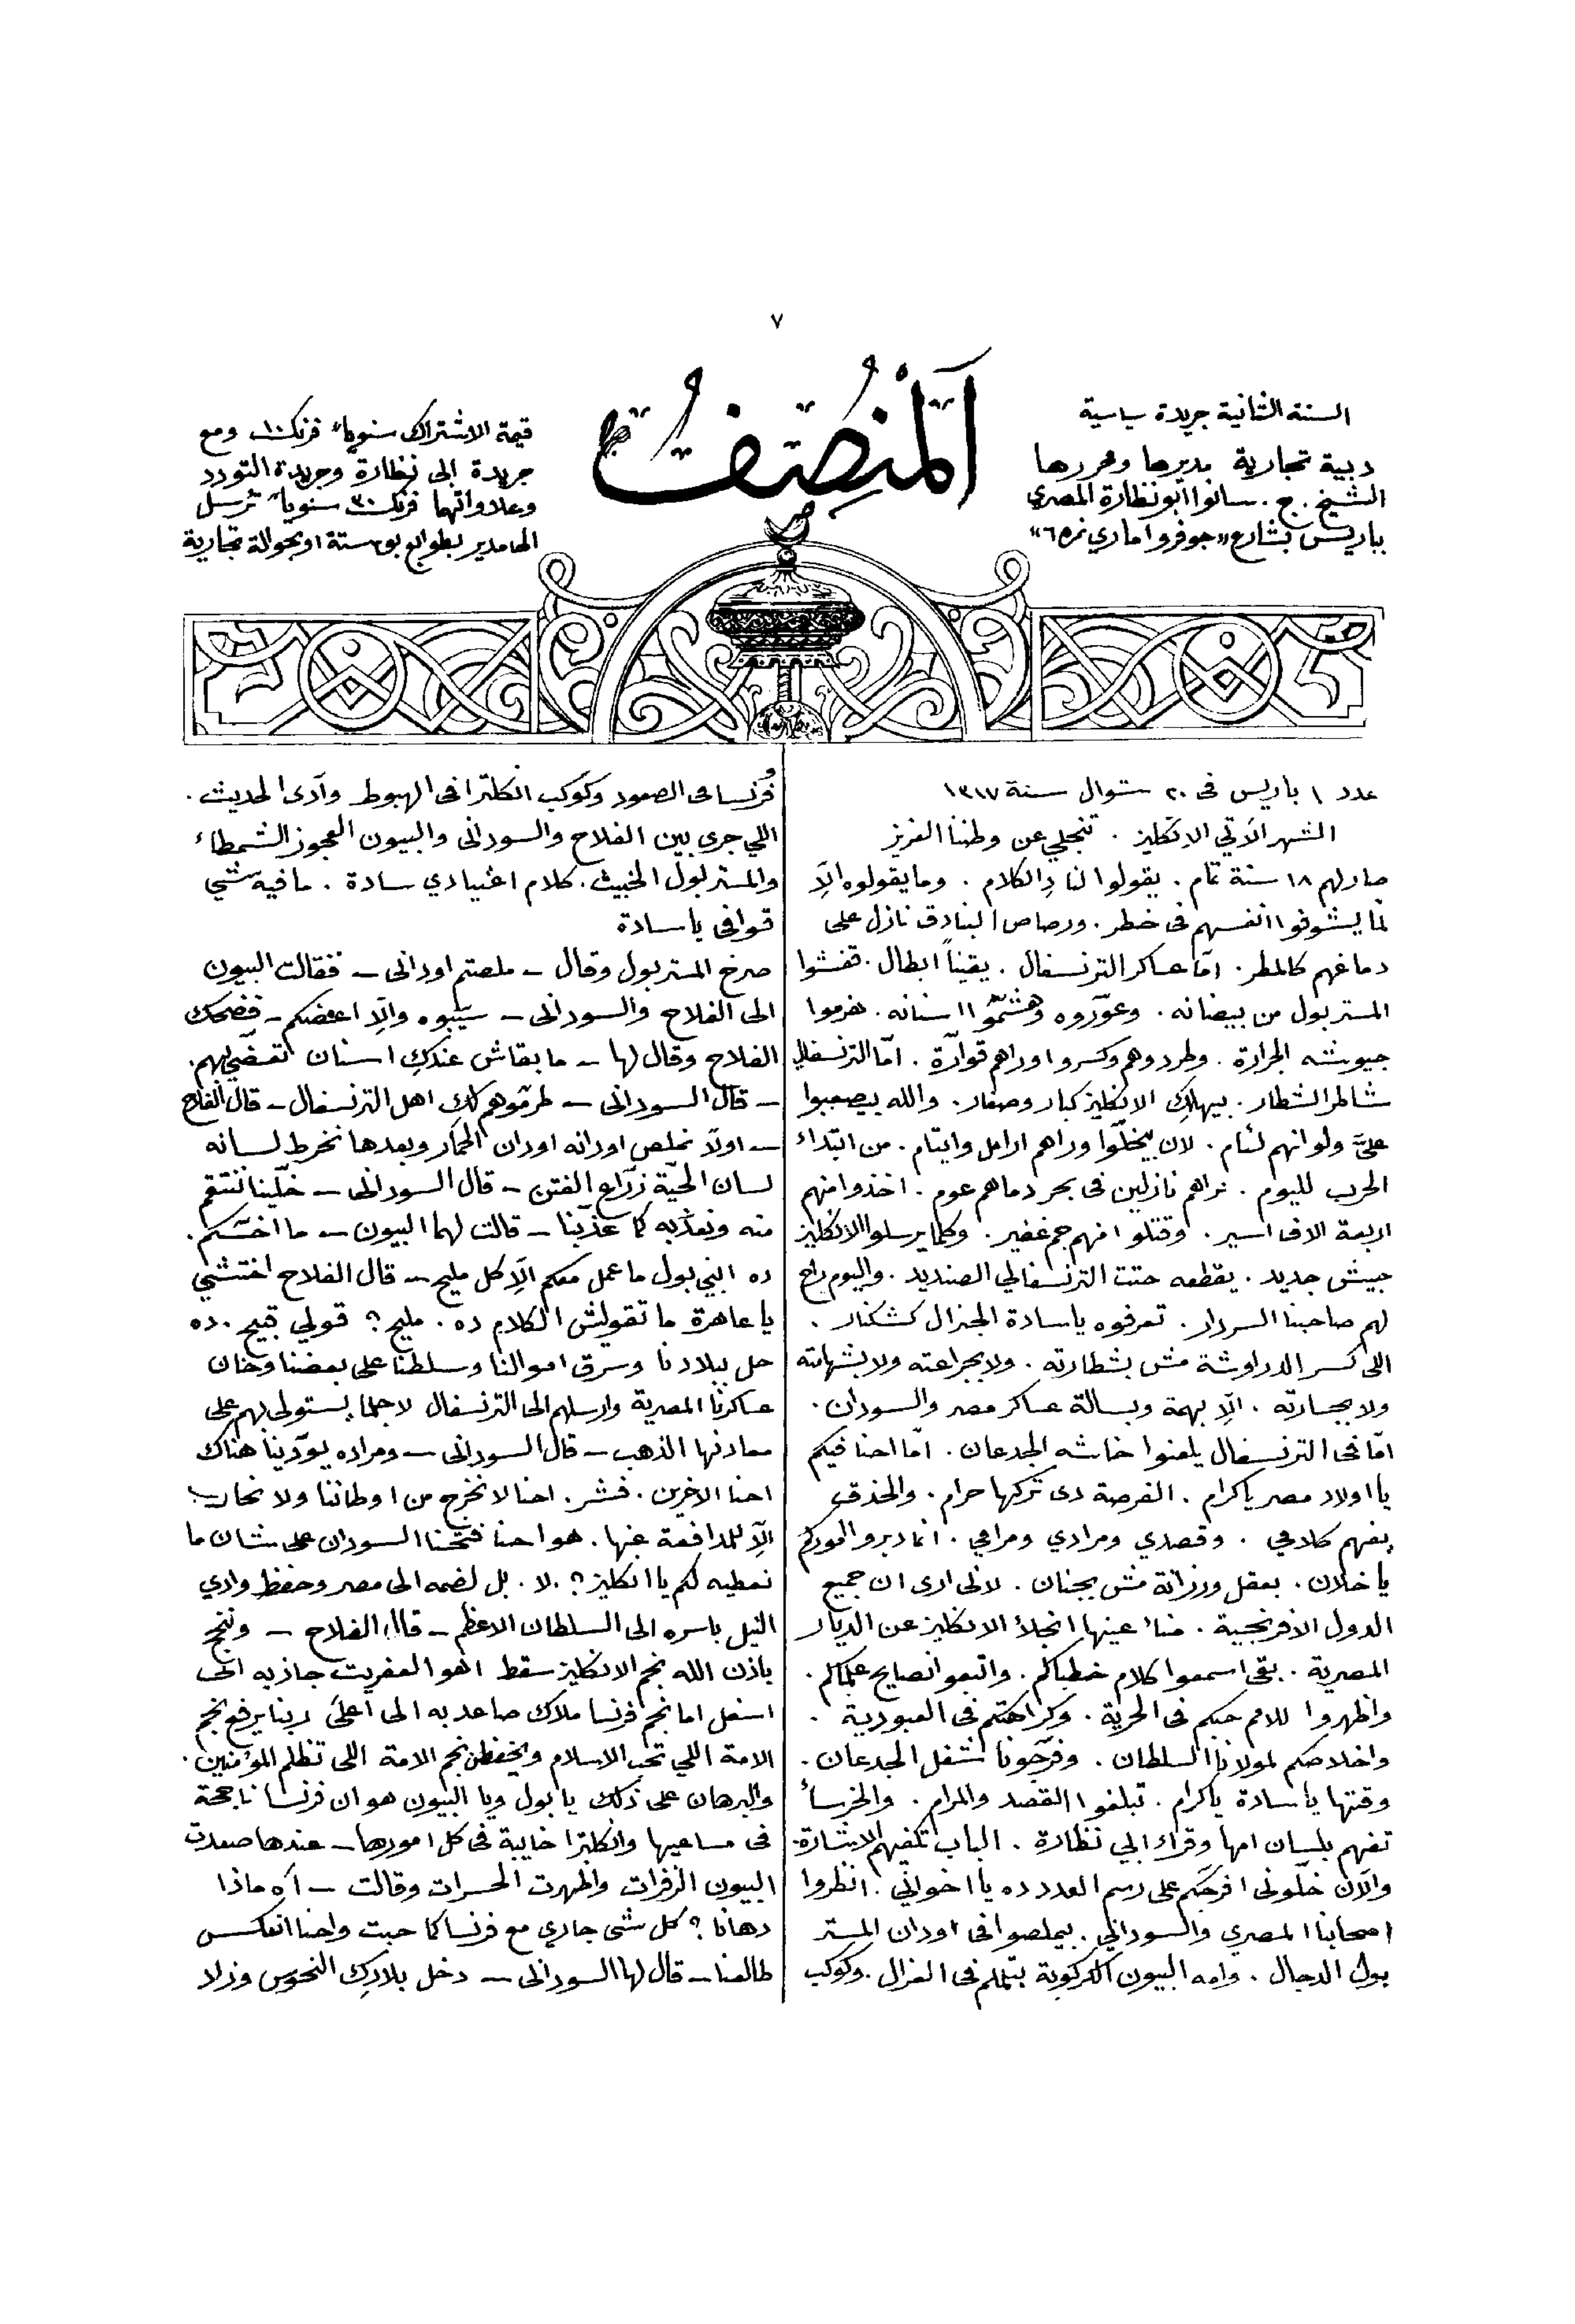 ٧
المنصف
السنة الثانية جريدة سياسية
دبية تجارية مديرها ومحررها
الشيخ . ج . سانوا ابو نظارة المصري
بباريس بشارع «جوفروا ماري نمره ٦»
قيمة الاشتراك سنوياً فرنك ١٠ ومع
جريدة ابى نظارة وجريدة التودد
وعلاواتها فرنك ٣٠ سنوياً ترسل
الى المدير بطوابع بوستة او بحوالة تجارية
عدد ١ باريس فى ٢٠ شوال سنة ١٣١٧
الشهر الآتي الانكليز . تنجلي عن وطننا العزيز
صار لهم ١٨ سنة تمام . يقولوا لنا دِ الكلام . وما يقولوه الاّ
لمّا يشوفوا انفسهم فى خطر . ورصاص البنادق نازل على
دماغهم كالمطر . امّا عساكر الترنسفال . يقيناً ابطال . قفشوا
المستر بول من بيضانه . وعوّروه وهشّموا اسنانه . هزموا
جيوشه الجرارة . وطردوهم وكسروا وراهم قوارّة . امّا الترنسفالي
شاطر الشطار . بيهلك الانكليز كبار وصغار . والله بيصعبوا
عليّ ولو انهم لئام . لان يخلّوا وراهم ارامل وايتام . من ابتداء
الحرب لليوم . نراهم نازلين فى بحر دماهم عوم . اخذوا منهم
اربعة الاف اسير . وقتلوا منهم جم غفير . وكلما يرسلوا الانكليز
جيش جديد . يقطعه حتت الترنسفالي الصنديد . واليوم راح
لهم صاحبنا السردار . تعرفوه يا سادة الجنرال كشكنار .
اللى كسر الدراوشة مش بشطارته . ولا بجراعته ولا بشهامته
ولا بجسارته . الاّ بهمة وبسالة عساكر مصر والسودان .
امّا فى الترنسفال يلعنوا خاشه الجدعان . امّا احنا فيكم
يا اولاد مصر يا كرام . الفرصة دى تركها حرام . والحذق
يفهم كلامي . وقصدي ومرادي ومرامي . انما دبروا اموركم
يا خلان . بعقل ورزانة مش بجنان . لانى ارى ان جميع
الدول الافرنجية . مناء عينها انجلاً الانكليز عن الديار
المصرية . بقى اسمعوا كلام خطباكم . واتبعوا نصايح علماكم .
واظهروا للامم حبكم فى الحرية . وكراهتكم فى العبودية .
واخلاصكم لمولانا السلطان . وفرّجونا شغل الجدعان .
وقتها يا سادة يا كرام . تبلغوا القصد والمرام . والخرساً
تفهم بلسان امها وقراء ابي نظارة . الباب تكفيهم الاشارة .
والآن خلّونى افرجكم على رسم العدد ده يا اخواني . انظروا
اصحابنا المصري والسوداني . بيملصوا فى اودان المستر
بول الدجال . وامه البيون الكركوبة بتململم فى الغزال . وكوكب
فرنسا فى الصعود وكوكب انكلترا فى الهبوط وآدى الحديث .
اللي جرى بين الفلاح والسودانى والبيون العجوز الشمطاء
والمستر بول الخبيث . كلام اعتيادي سادة . ما فيه شي
قوافى يا سادة
صرخ المستر بول وقال – ملصتم اودانى – فقالت البيون
الى الفلاح والسودانى – سيّبوه والاّ اعضكم – فضحك
الفلاح وقال لها – ما بقاش عندكِ اسنان تعضّي بهم .
– قال السودانى – طرمّوهم لك اهل الترنسفال – قال الفلاح
– اولاً نملص اودانه اودان الحمار وبعدها نخرط لسانه
لسان الحيّة زرّاع الفتن – قال السودانى – خلّينا ننتقم
منه ونعذّبه كما عذّبنا – قالت لهما البيون – ما اخسّكم .
ده ابني بول ما عمل معكم الاّ كل مليح – قال الفلاح اختشي
يا عاهرة ما تقوليش الكلام ده . مليح ؟ قولي قبيح . ده
حل ببلادنا وسرق اموالنا وسلطنا على بعضنا وخان
عساكرنا المصرية وارسلهم الى الترنسفال لاجلما يستولى بهم على
معادنها الذهب – قال السودانى – ومراده يودّينا هناك
احنا الاخرين . فشر . احنا لا نخرج من اوطاننا ولا نحارب
الاّ للمدافعة عنها . هو احنا فتحنا السودان على شان ما
نعطيه لكم يا انكليز ؟ . لا . بل لضمه الى مصر وحفظ وادي
النيل باسره الى السلطان الاعظم – قال الفلاح – ونجح
باذن الله نجم الانكليز سقط اهو العفريت جاذبه الى
اسفل اما نجم فرنسا ملاك صاعد به الى اعلىَ ربنا يرفع نجم
الامة اللي تحب الاسلام ويخفض نجم الامة اللى تظلم المؤمنين .
والبرهان على ذلك يا بول ويا البيون هو ان فرنسا ناجحة
فى مساعيها وانكلترا خايبة فى كل امورها – عندها صعدت
البيون الزفرات واظهرت الحسرات وقالت – آه ماذا
دهانا ؟ كل شى جاري مع فرنسا كما حبت واحنا انعكس
طالعنا – قال لها السودانى – دخل بلادِك النحوس وزلاد